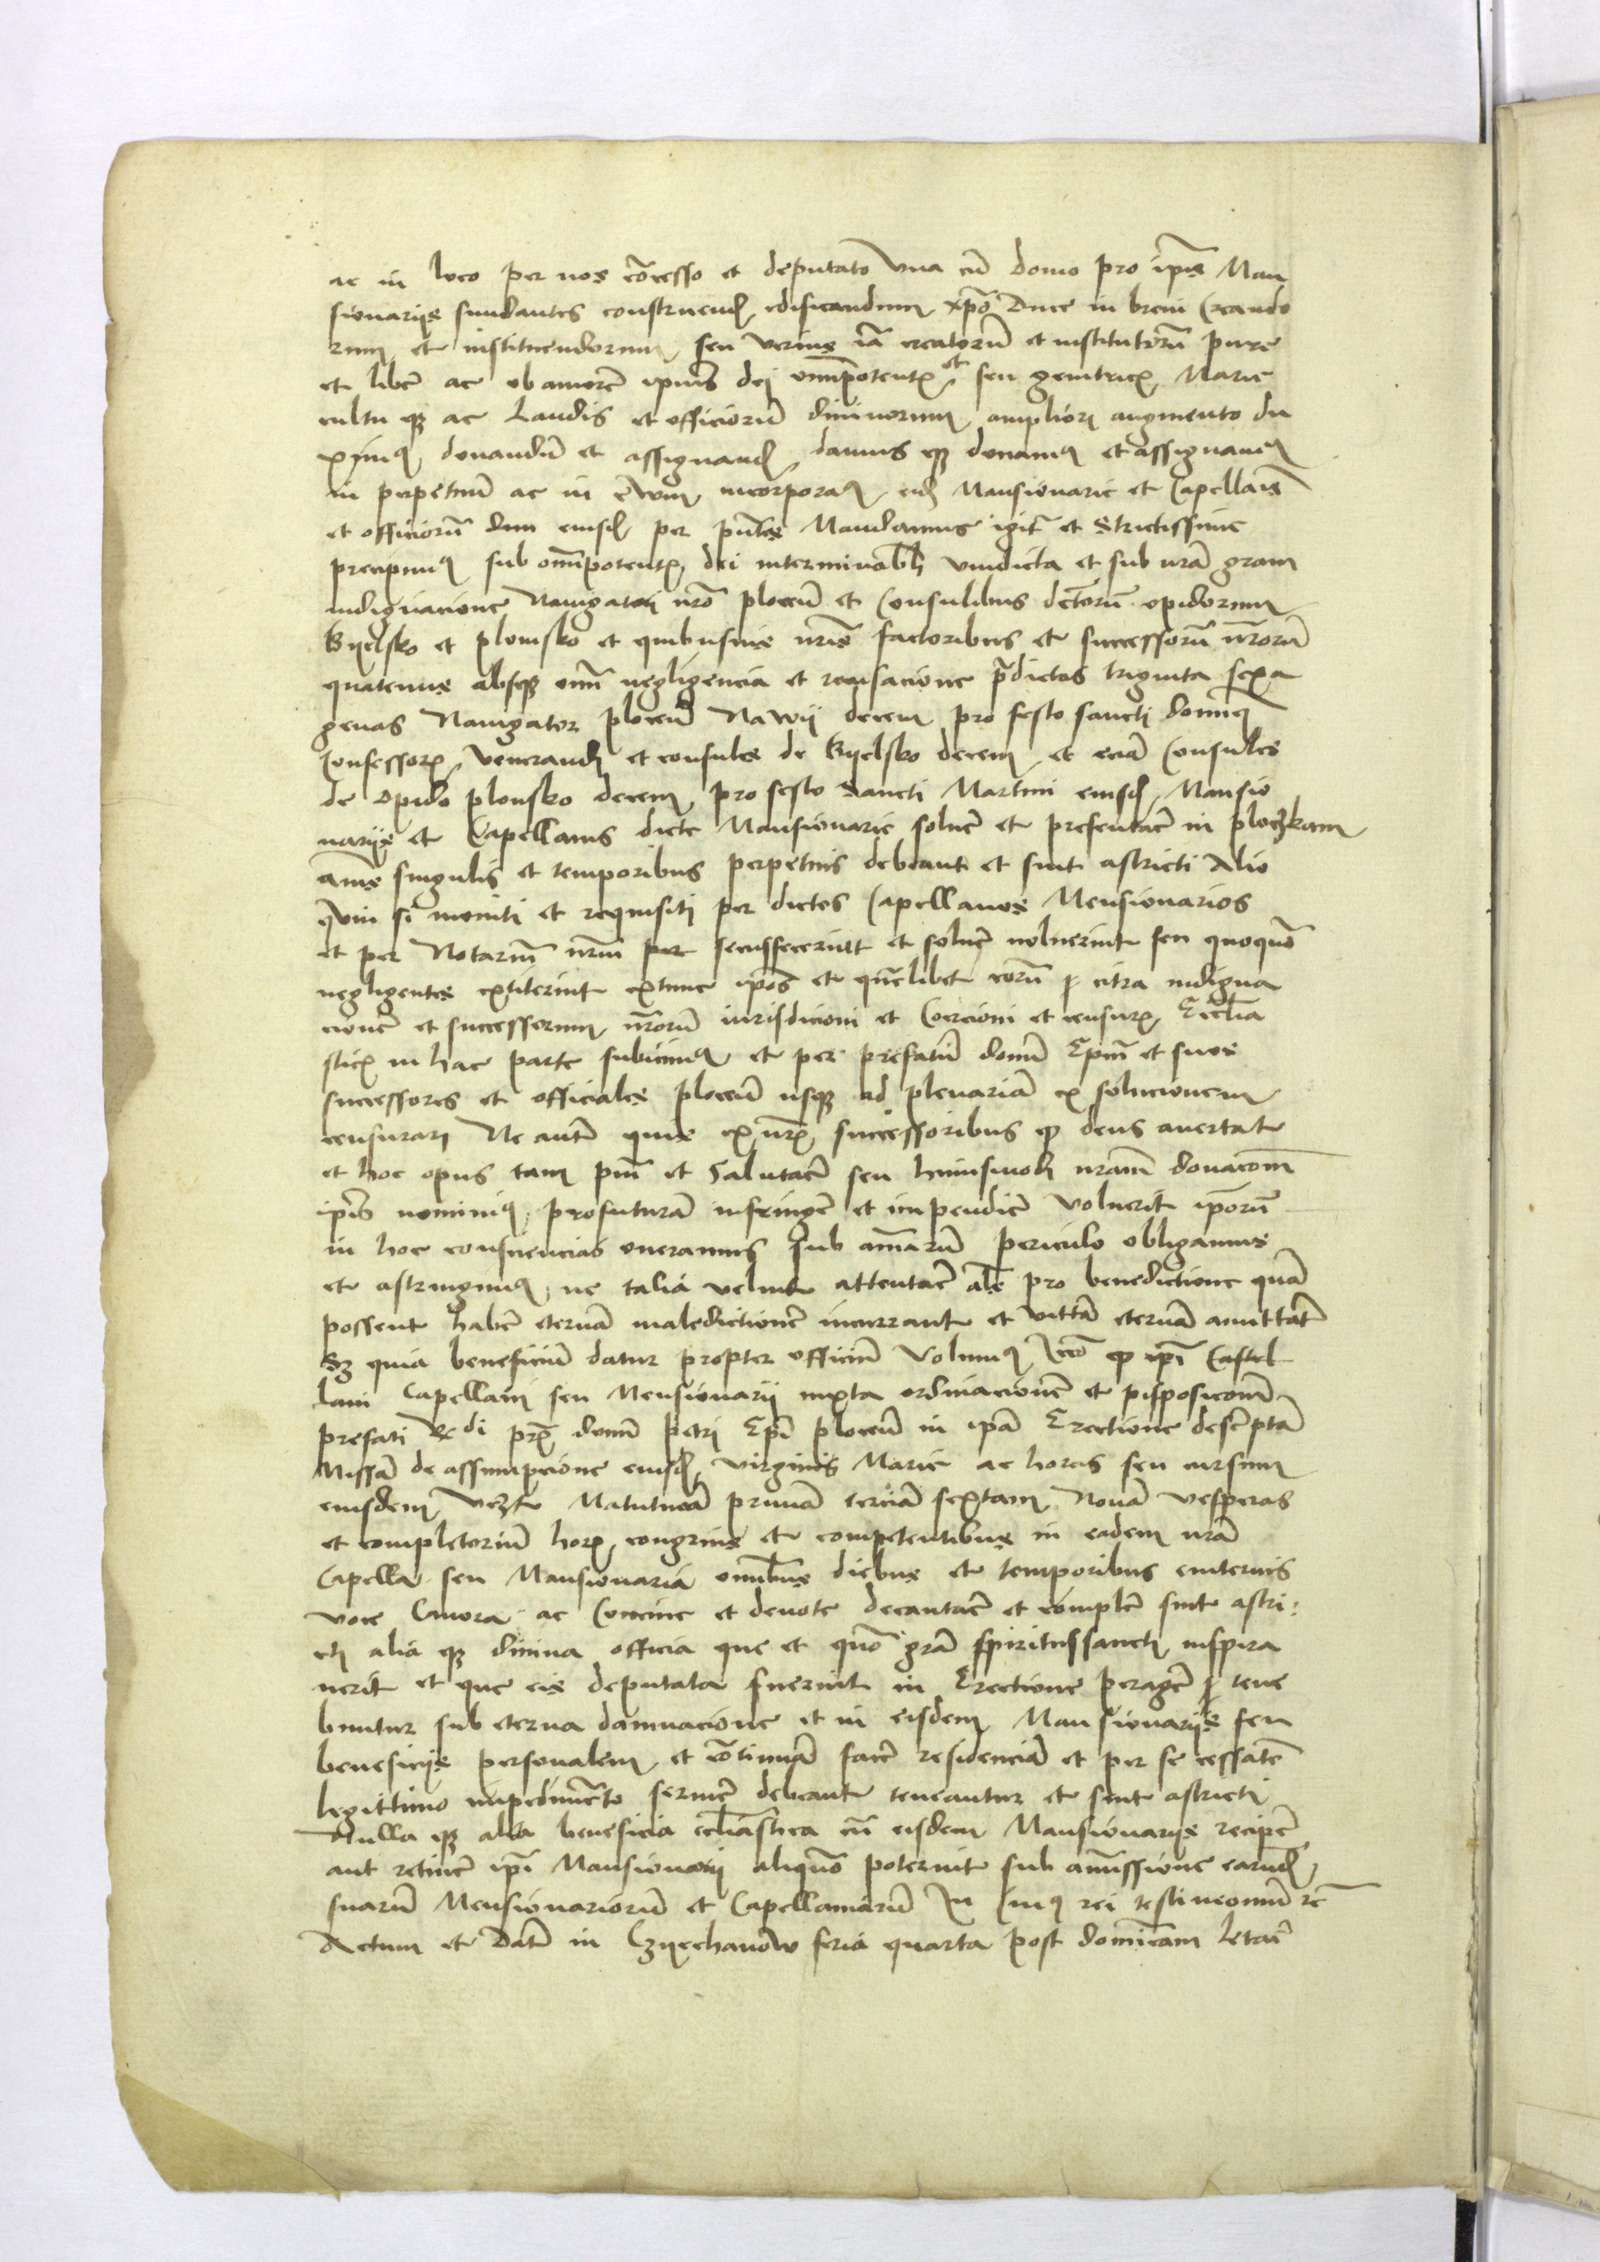 ac in loco per nos cōcesso et deputato vna cū domo pro ip̄is Man
sionarijs fundantes construend edificandum xp̄o Duce in breui Creando
rum et instituendorum seu verius iā creatorū et institutorū pure
et liberē ac ob amorē ipius dej omīpotentis et seu genitricis Marie
cultu qȝ ac Laudis et officiorū diuinorum ampliori augmento du
ximꝰ donandū et assignand damus qȝ donamꝰ et assignamꝰ
in perpetuū ac in ewum incorporamꝰ eidē Mansionarie et Capellais
et officiorū dum eiusd per pn̄tes Mandamus igit̄ et strictissime
precipimꝰ sub omīpotentis dei interminabili vindicta et sub nrā gram
indignacione Nauigatori nrō plocēn et Consulibus dc̄torū opidorum
Byelsko et plonsko et quibusuis nrīs factoribus et successorū nr̄orū
quatenus absqȝ omī negligencia et recusacione p̄dictas triginta sexa
genas Nauigator plocēn Nawij decem pro festo sancti dominici
Confessoris venerandi et consules de Byelsko decem et eciā Consules
de opido plonsko decem pro festo Sancti Martini eiusd Mansio
narijs et Capellanis dicte Mansionarie soluē et presentarē in ploczkam
annis singulis et temporibus perpetuis debeant et sint astricti Alio
quin si moniti et requisiti per dictos Capellanos Mensionarios
et per Notariū nrm per secusfecerint et soluē noluerint seu quoquō
negligentes extiterint extunc ip̄os et quēlibet eorū citra indigna
cionē et successorum nr̄orū iurisdicioni et Coercioni et censuris Eccl̄ia
sticis in hac parte subicimꝰ et per prefatū domū Ep̄m et suos
successores et officiales plocēn usqȝ ad plenariā ex solucionem
censurari Ne autē quis ex nris successoribus qꝫ deus auertat
et hoc opus tam piū et Salutarē seu huiusmodi nram donacōm
ip̄is nominiꝰ profuturā infringē et impendiē voluerit ip̄orū
in hoc consciencias oneramus sub aīmarū periculo obligamus
et astringimꝰ ne talia velint attentarē al̄s pro benedictione quā
possent habē eternā maledictionē incurrant et vittā eternā amittāt
Sȝ quia beneficiū datur propter officiū Volumꝰ Jtēo qꝫ ip̄i Castel
lani Capellani seu Mensionarij iuxta ordinacionē et disposicōm
prefati Rdi pris domī petri Ep̄i plocēn in ipā Erectione desc̄ptā
Missā de assumpcione eiusd virginis Marie ac horas seu cursum
eiusdem vcȝt Matutinā primā terciā sextam Nonā vesperas
et completoriū horis congruis et competentibus in eadem nrā
Capella seu Mansionaria omībus diebus et temporibus eniternis
voce Canora ac Concine et deuote decantarē et complē sint astri:
cti alia qȝ diuina officia que et quō grā spiritussancti inspira
uerit et que eis deputata fuerint in Erectione peragē tene
buntur sub eterna damnacione et in eisdem Mansionarijs seu
beneficijs personalem et cōtinuā facē residenciā et per se cessatē
legittimo impedimēto seruirē debeant teneantur et sint astricti
Nulla qȝ alia beneficia eccl̄iastica cū eisdem Mansionarijs recipē
aut retinē ip̄i Mansionarij aliquō poterint sub amissione earund
suarū Mensionariorū et Capellaniarū In Cuiꝰ rei testimoniū rē
Actum et Datū in Czyechanow feria quarta post dominicam letarē